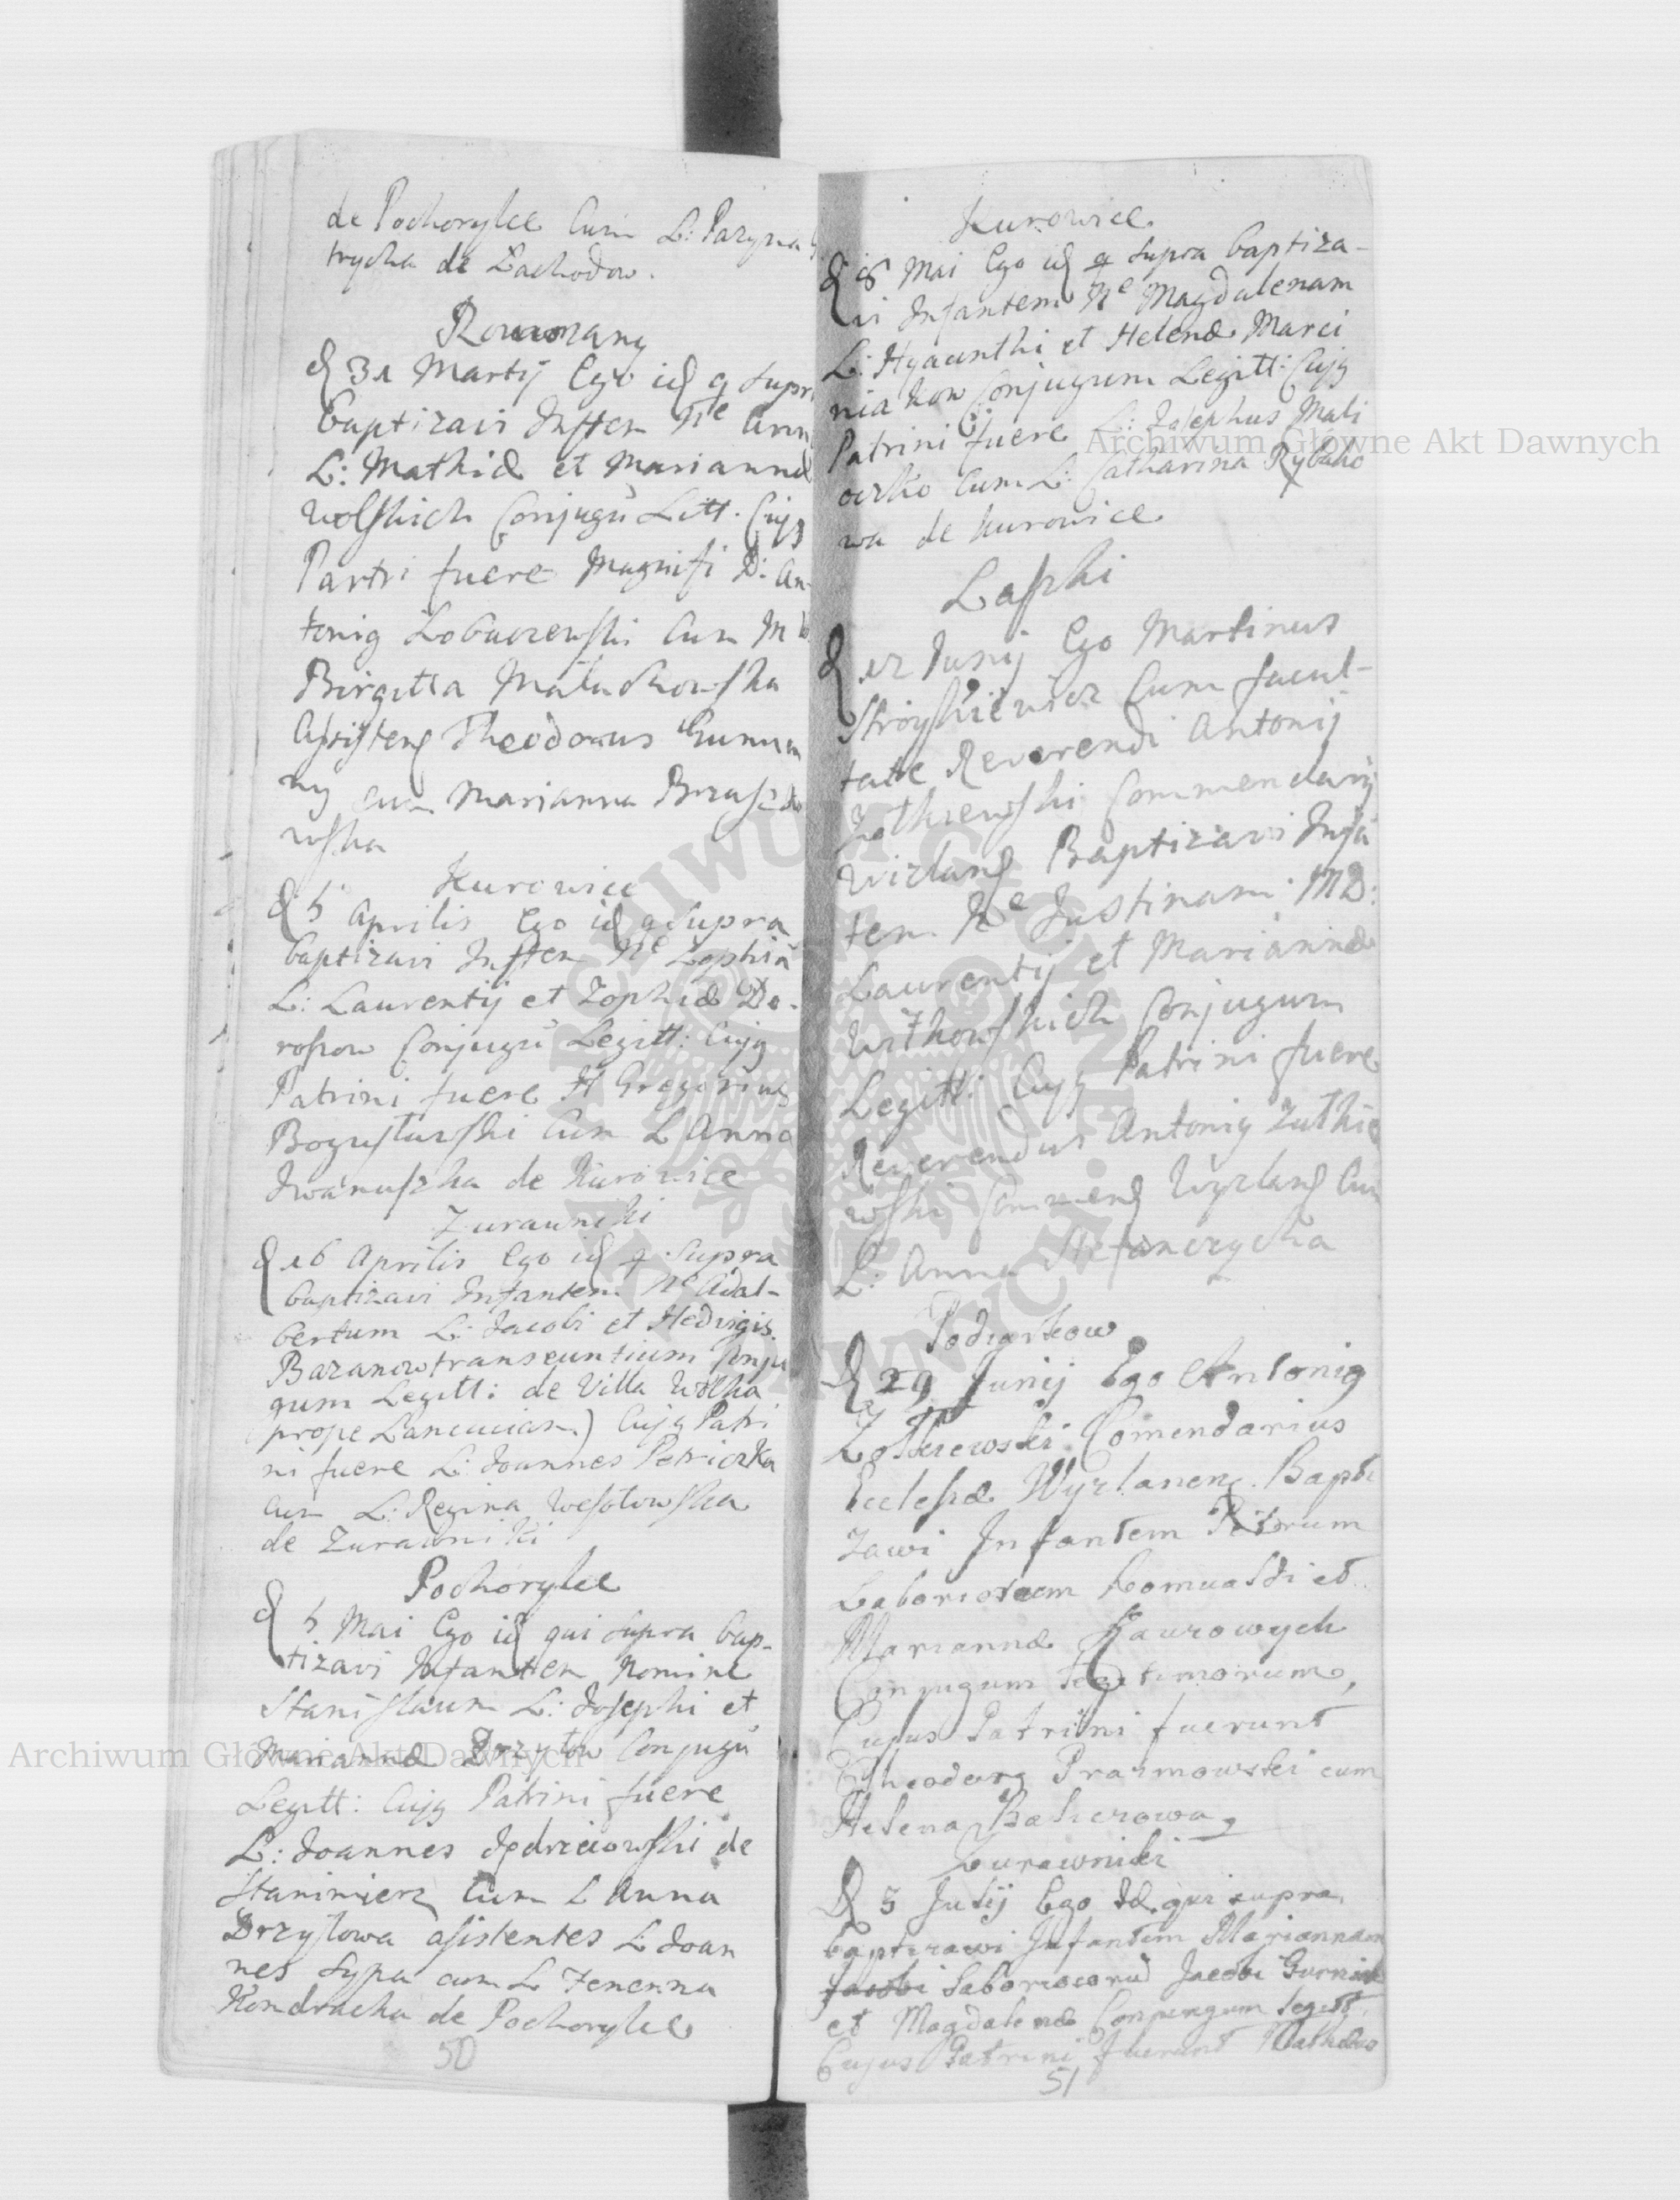 de Pochorylce Cum L: Paryna
trycha de Zachodow.
Rozworzany
d 31 Martij Ego id q supra
baptizavi Inften Ne Ann
L: Mathiæ et Mariannæ
Wolskich Conjugũ Litt. Cujq
Partri fuere Magnifi D: An-
toniq Lobaczewski Cum M
Birgitta Malachowska
Assisteng Theodorus
ny cum Marianna
wska
Kurowice
d 5 Aprilis Ego id q supra
baptizavi Inften Ne Zophiã
L: Laurentij et Zophiæ Do-
roszow Conjugũ Legitt: Cujq
Patrini fuere H Gregorius
Bogusławski Cum L Anna
Iwanuszka de Kurowice
Zurawniki
d 16 Aprilis Ego id q supra
baptizavi Infantem Ne Adal-
bertum L: Jacobi et Hedvigis
Baranow transeuntium Conju
gum Legitt: de Villa Wolka
prope Lancuciam) Cujq Patri
ni fuere L: Joannes Petriczka
Cum L: Regina Wesołowska
de Zurawniki
Pochorylce
d 5 Mai Ego id qui supra bap-
tizavi Infanten Nomine
Stanislaum L: Josephi et
Mariannæ Drzytow Conjugũ
Legitt: Cujq Patrini fuere
L: Joannes Jędrzeiowski de
Stanimierz Cum L Anna
Drzytowa asistentes L Joan
nes Sypa cum L Fenenna
Kondracka de Pochorylce
50
Kurowice
d 8 Mai Ego id q supra baptiza-
vi Infantem Ne Magdalenam
L: Hyacinthi et Helenæ Marci
niakow Conjugum Legitt: Cujq
Patrini fuere L: Josephus Mali
oczko Cum L: Catharina Rybako
wa de Kurowice
Laszki
d 12 Junij Ego Martinus
Stroyskiewicz Cum facul-
tate Reverendi Antonij
Zothiewski Commendarij
Wizlang Baptizavi Infã
tem Ne Justinam MD:
Laurentij et Mariannæ
Witkowskich Conjugum
Legitt: Cujq Patrini fuere
Reverendus Antoniq Zulkie
wski Commeng Wyzlang Cum
L: Anna Stefanczycha
Podiarkow
d 29 Junij Ego Antoniq
Zołkiewski Comendarius
Ecclesiæ Wyzlaneng. Bapti
zawi Infantem
Laboriosum Romualdi et
Mariannæ Gaurowych
Conjugum Legitimorum,
Cujus Patrini fuerunt
Theodorq Prazmowski cum
Helena
Zurawniki
d 5 Julij Ego Id qui supra
baptizawi Infantem Mariannam
Jacobi Laboriosorũ Jacobi
et Magdalenæ Conjugum Legitt.
Cujus Patrini fuerunt Mathæo
51
Archiwum Główne Akt Dawnych
Archiwum Główne Akt Dawnych
ARCHIWUM GŁÓWNE AKT DAWNYCH